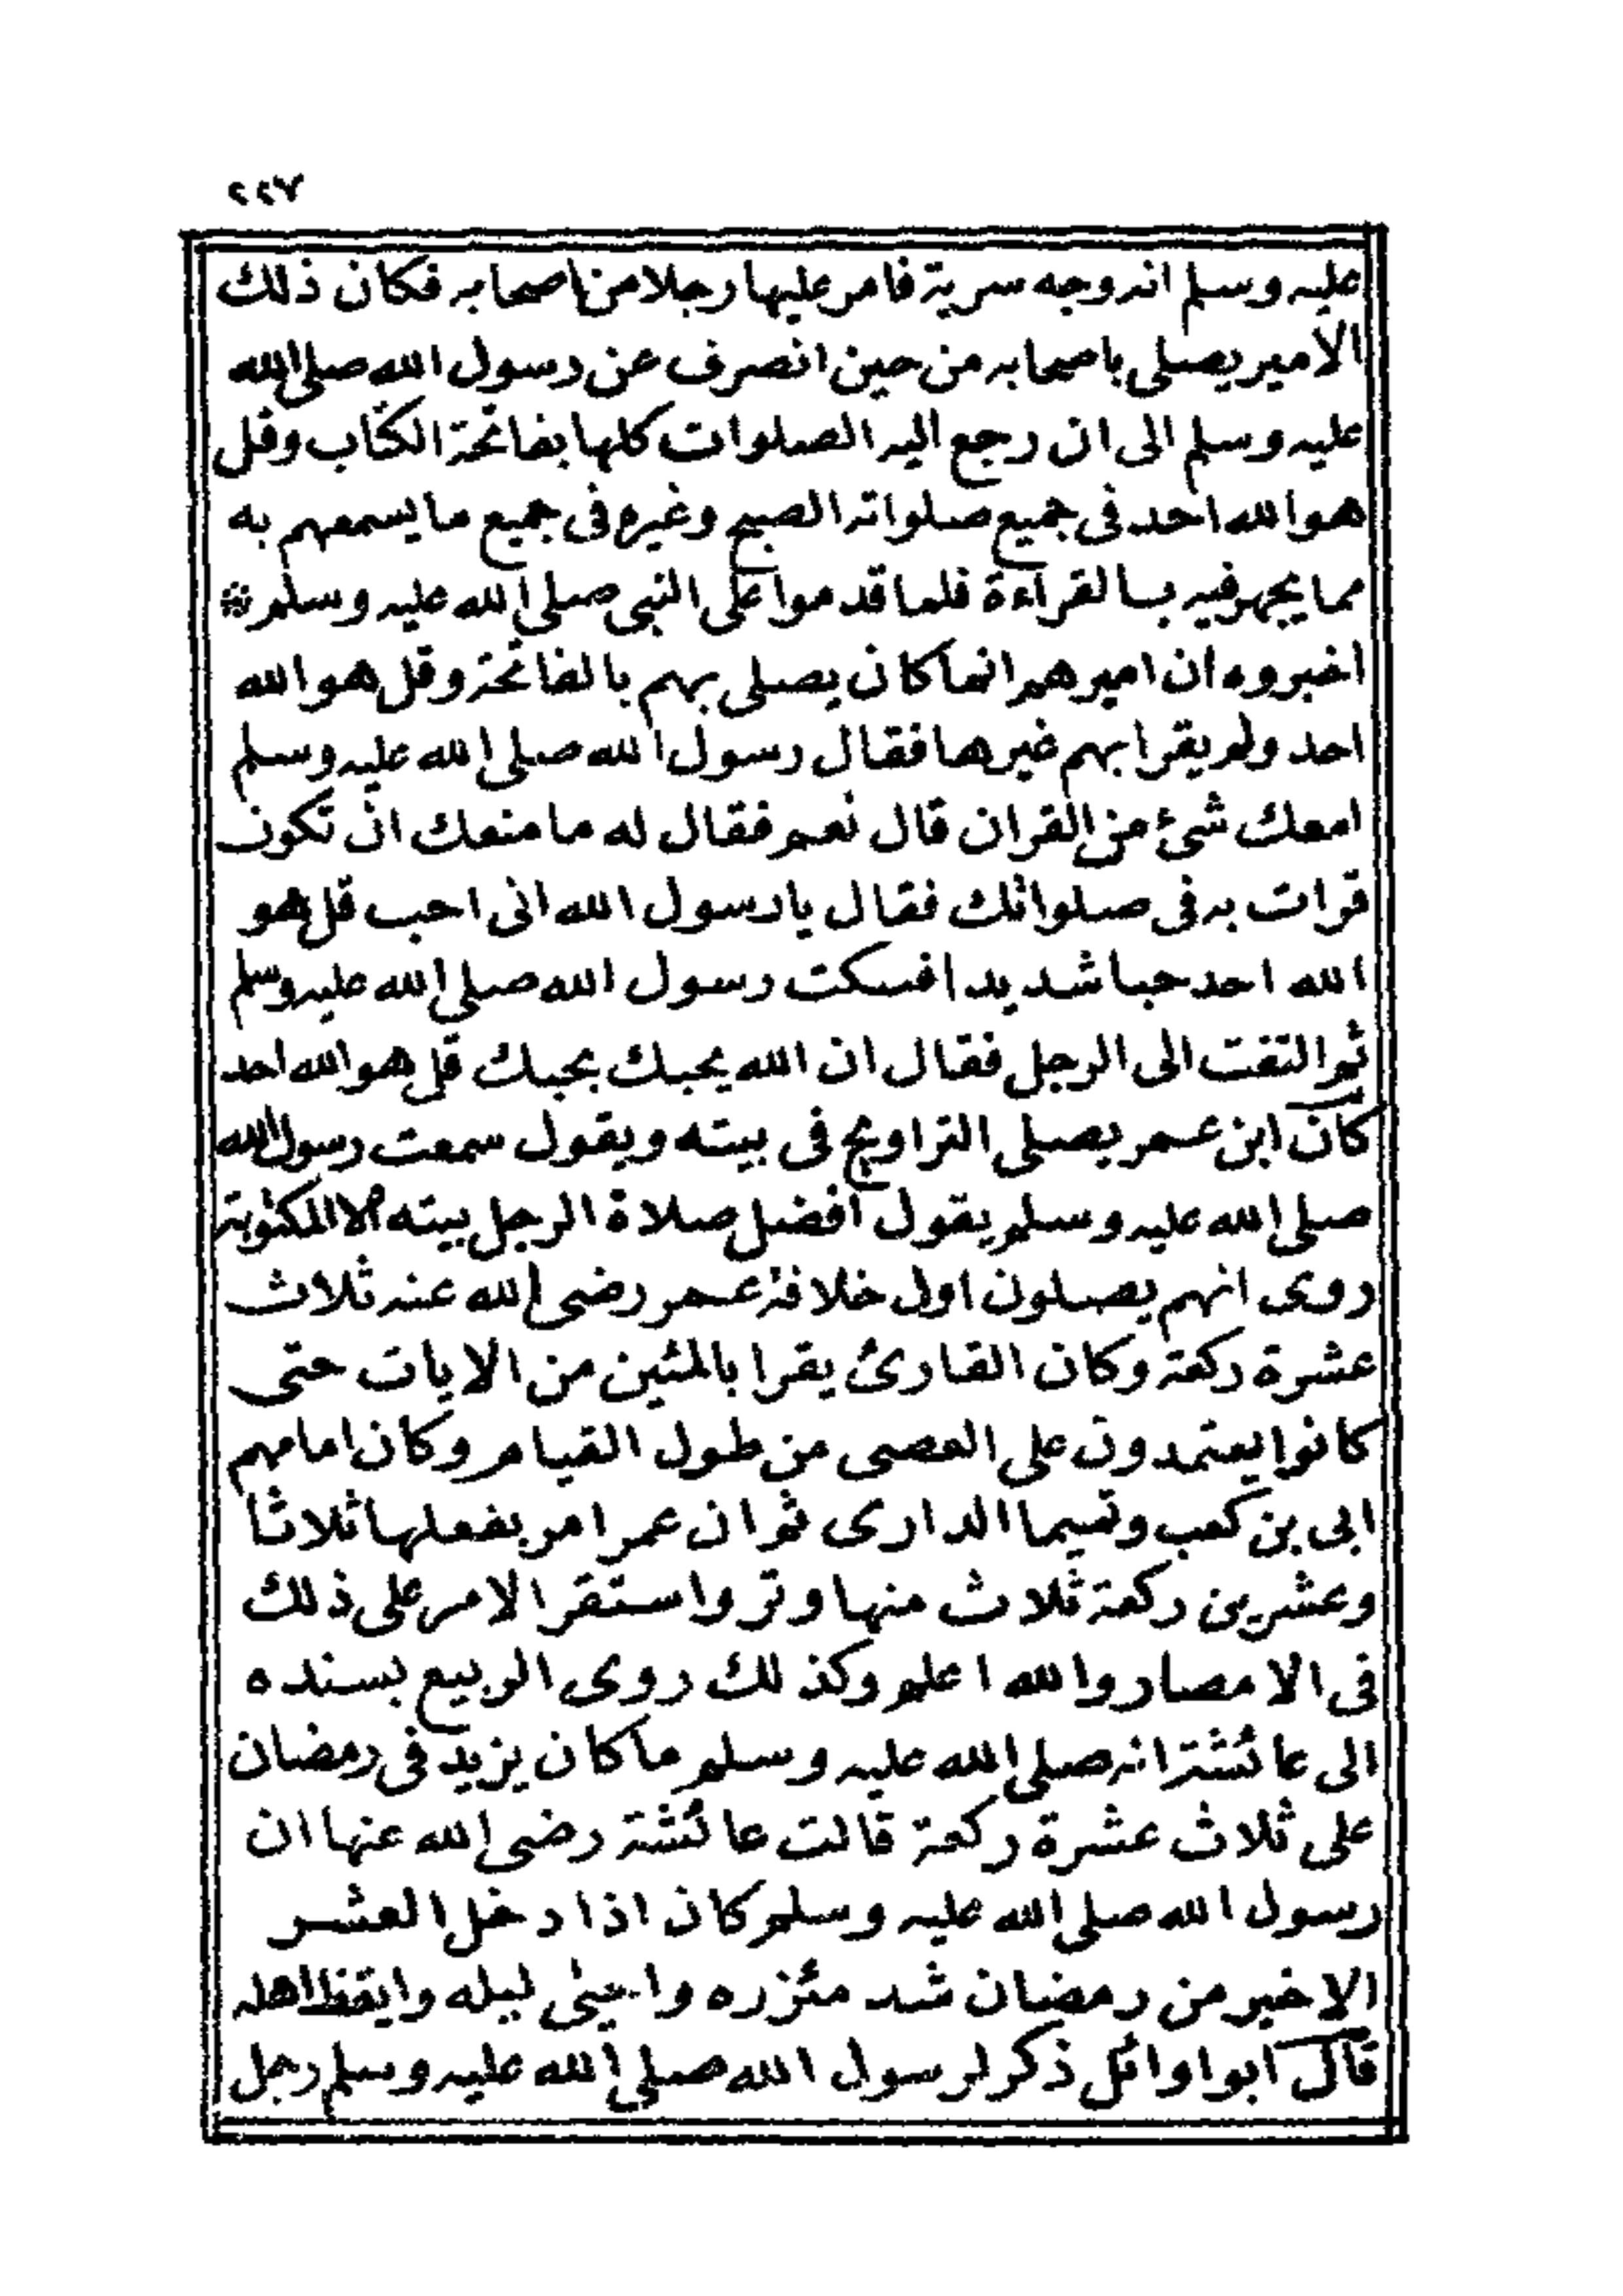 ٢٢٧
عليه وسلم انه وجه سرية فامر عليها رجلا من اصحابه فكان ذلك
الامير يصلى باصحابه من حين انصرف عن رسول الله صلى الله
عليه وسلم الى ان رجع اليه الصلوات كلها بفاتحة الكتاب وقل
هو الله احد فى جميع صلواته الصبح وغيره فى جميع ما يسمعهم به
مما يجهر فيه بالقراءة فلما قدموا على النبى صلى الله عليه وسلم *
اخبروه ان اميرهم انما كان يصلى بهم بالفاتحة وقل هو الله
احد ولم يقرا بهم غيرها فقال رسول الله صلى الله عليه وسلم
امعك شئ من القران قال نعم فقال له ما منعك ان تكون
قرات به فى صلواتك فقال يا رسول الله انى احب قل هو
الله احد حبا شديدا فسكت رسول الله صلى الله عليه وسلم
ثم التفت الى الرجل فقال ان الله يحبك بحبك قل هو الله احد
كان ابن عمر يصلى التراويح فى بيته ويقول سمعت رسول الله
صلى الله عليه وسلم يقول افضل صلاة الرجل بيته الا المكتوبة
روى انهم يصلون اول خلافة عمر رضى الله عنه ثلاث
عشرة ركعة وكان القارئ يقرا بالمئين من الايات حتى
كانوا يعتمدون على العصى من طول القيام وكان امامهم
ابى بن كعب وتميما الدارى ثم ان عمر امر بفعلها ثلاثا
وعشرين ركعة ثلاث منها وتر واستقر الامر على ذلك
فى الامصار والله اعلم وكذلك روى الربيع بسنده
الى عائشة انه صلى الله عليه وسلم ما كان يزيد فى رمضان
على ثلاث عشرة ركعة قالت عائشة رضى الله عنها ان
رسول الله صلى الله عليه وسلم كان اذا دخل العشر
الاخير من رمضان شد مئزره واحيى ليله وايقظ اهله
قال ابوا وائل ذكر لرسول الله صلى الله عليه وسلم رجل